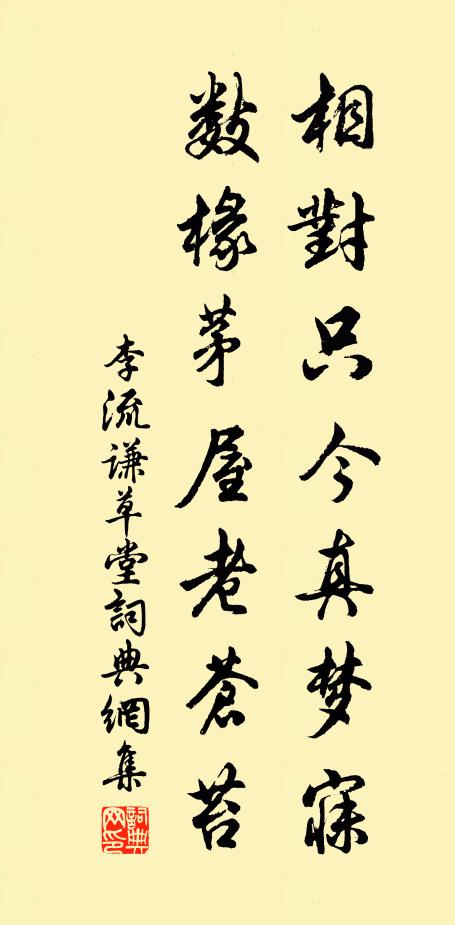 相對只今真梦寐
數椽茅屋老蒼苔
李流谦草堂詞典網集
詞典網印